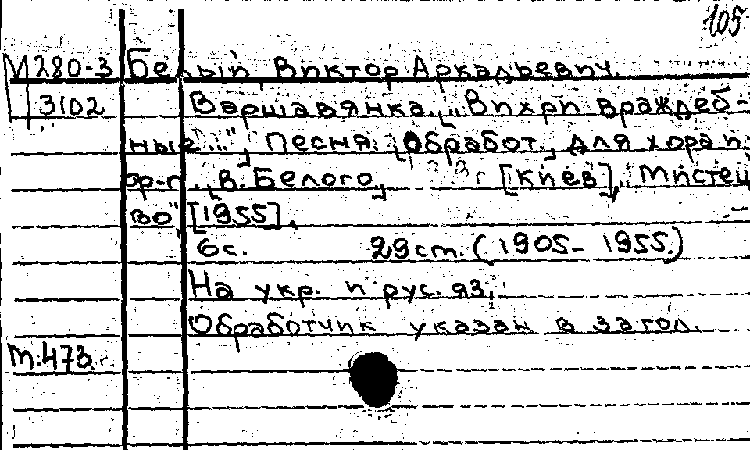 105
М280-3 Белый, Виктор Аркадьевич.
3102 Варшавянка. „Вихри враждеб-
ные...", Песня. [Обработ.] для хора и
ф-п. [В. Белого] [Киев], „Мистец
во", [1955].
6с. 29cm. (1905-1955.)
На укр. и рус. яз.
Обработчик указан в загол.
М.473.